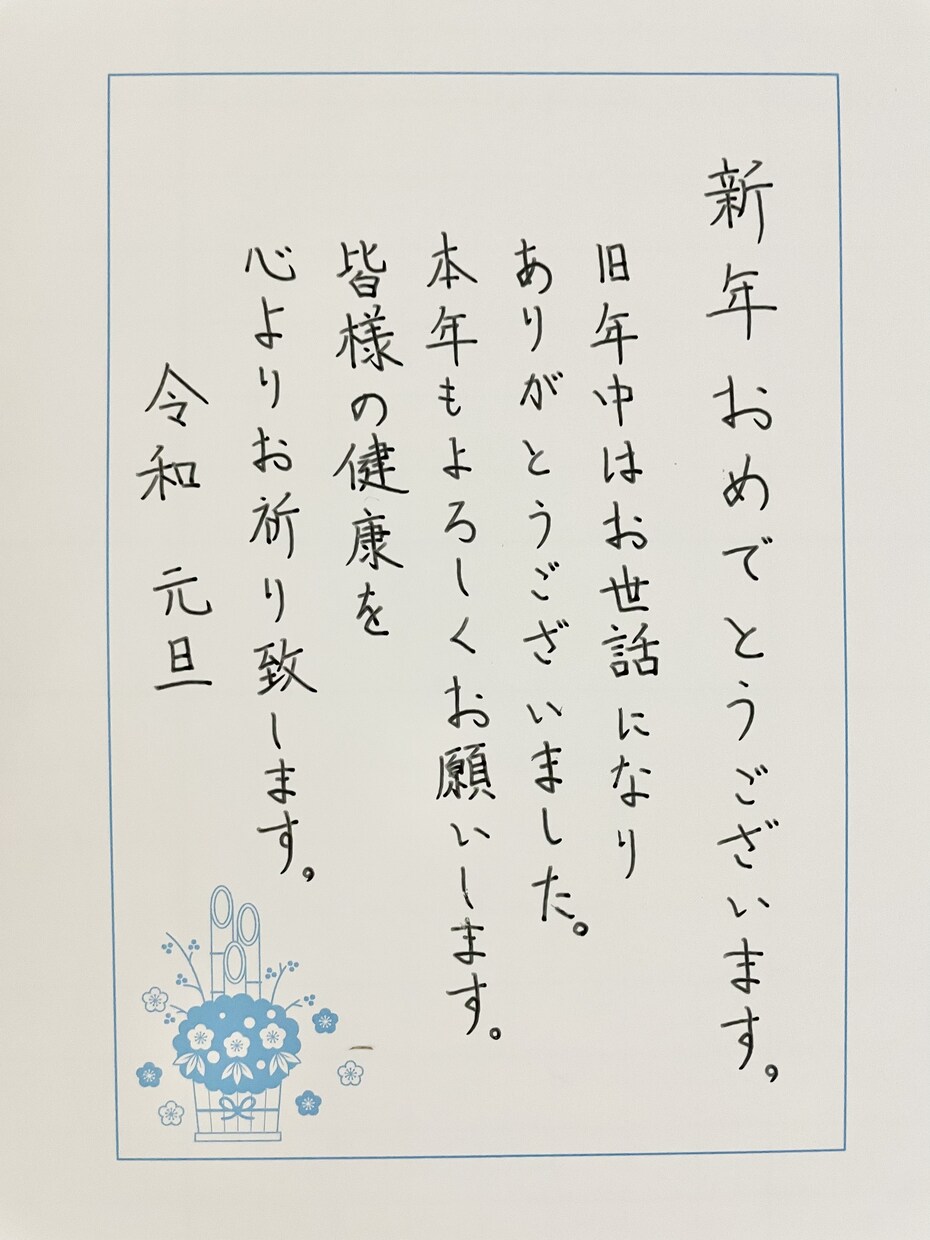 新年おめでとうございます。
旧年中はお世話になり
ありがとうございました。
本年もよろしくお願いします。
皆様の健康を
心よりお祈り致します。
令和 元旦